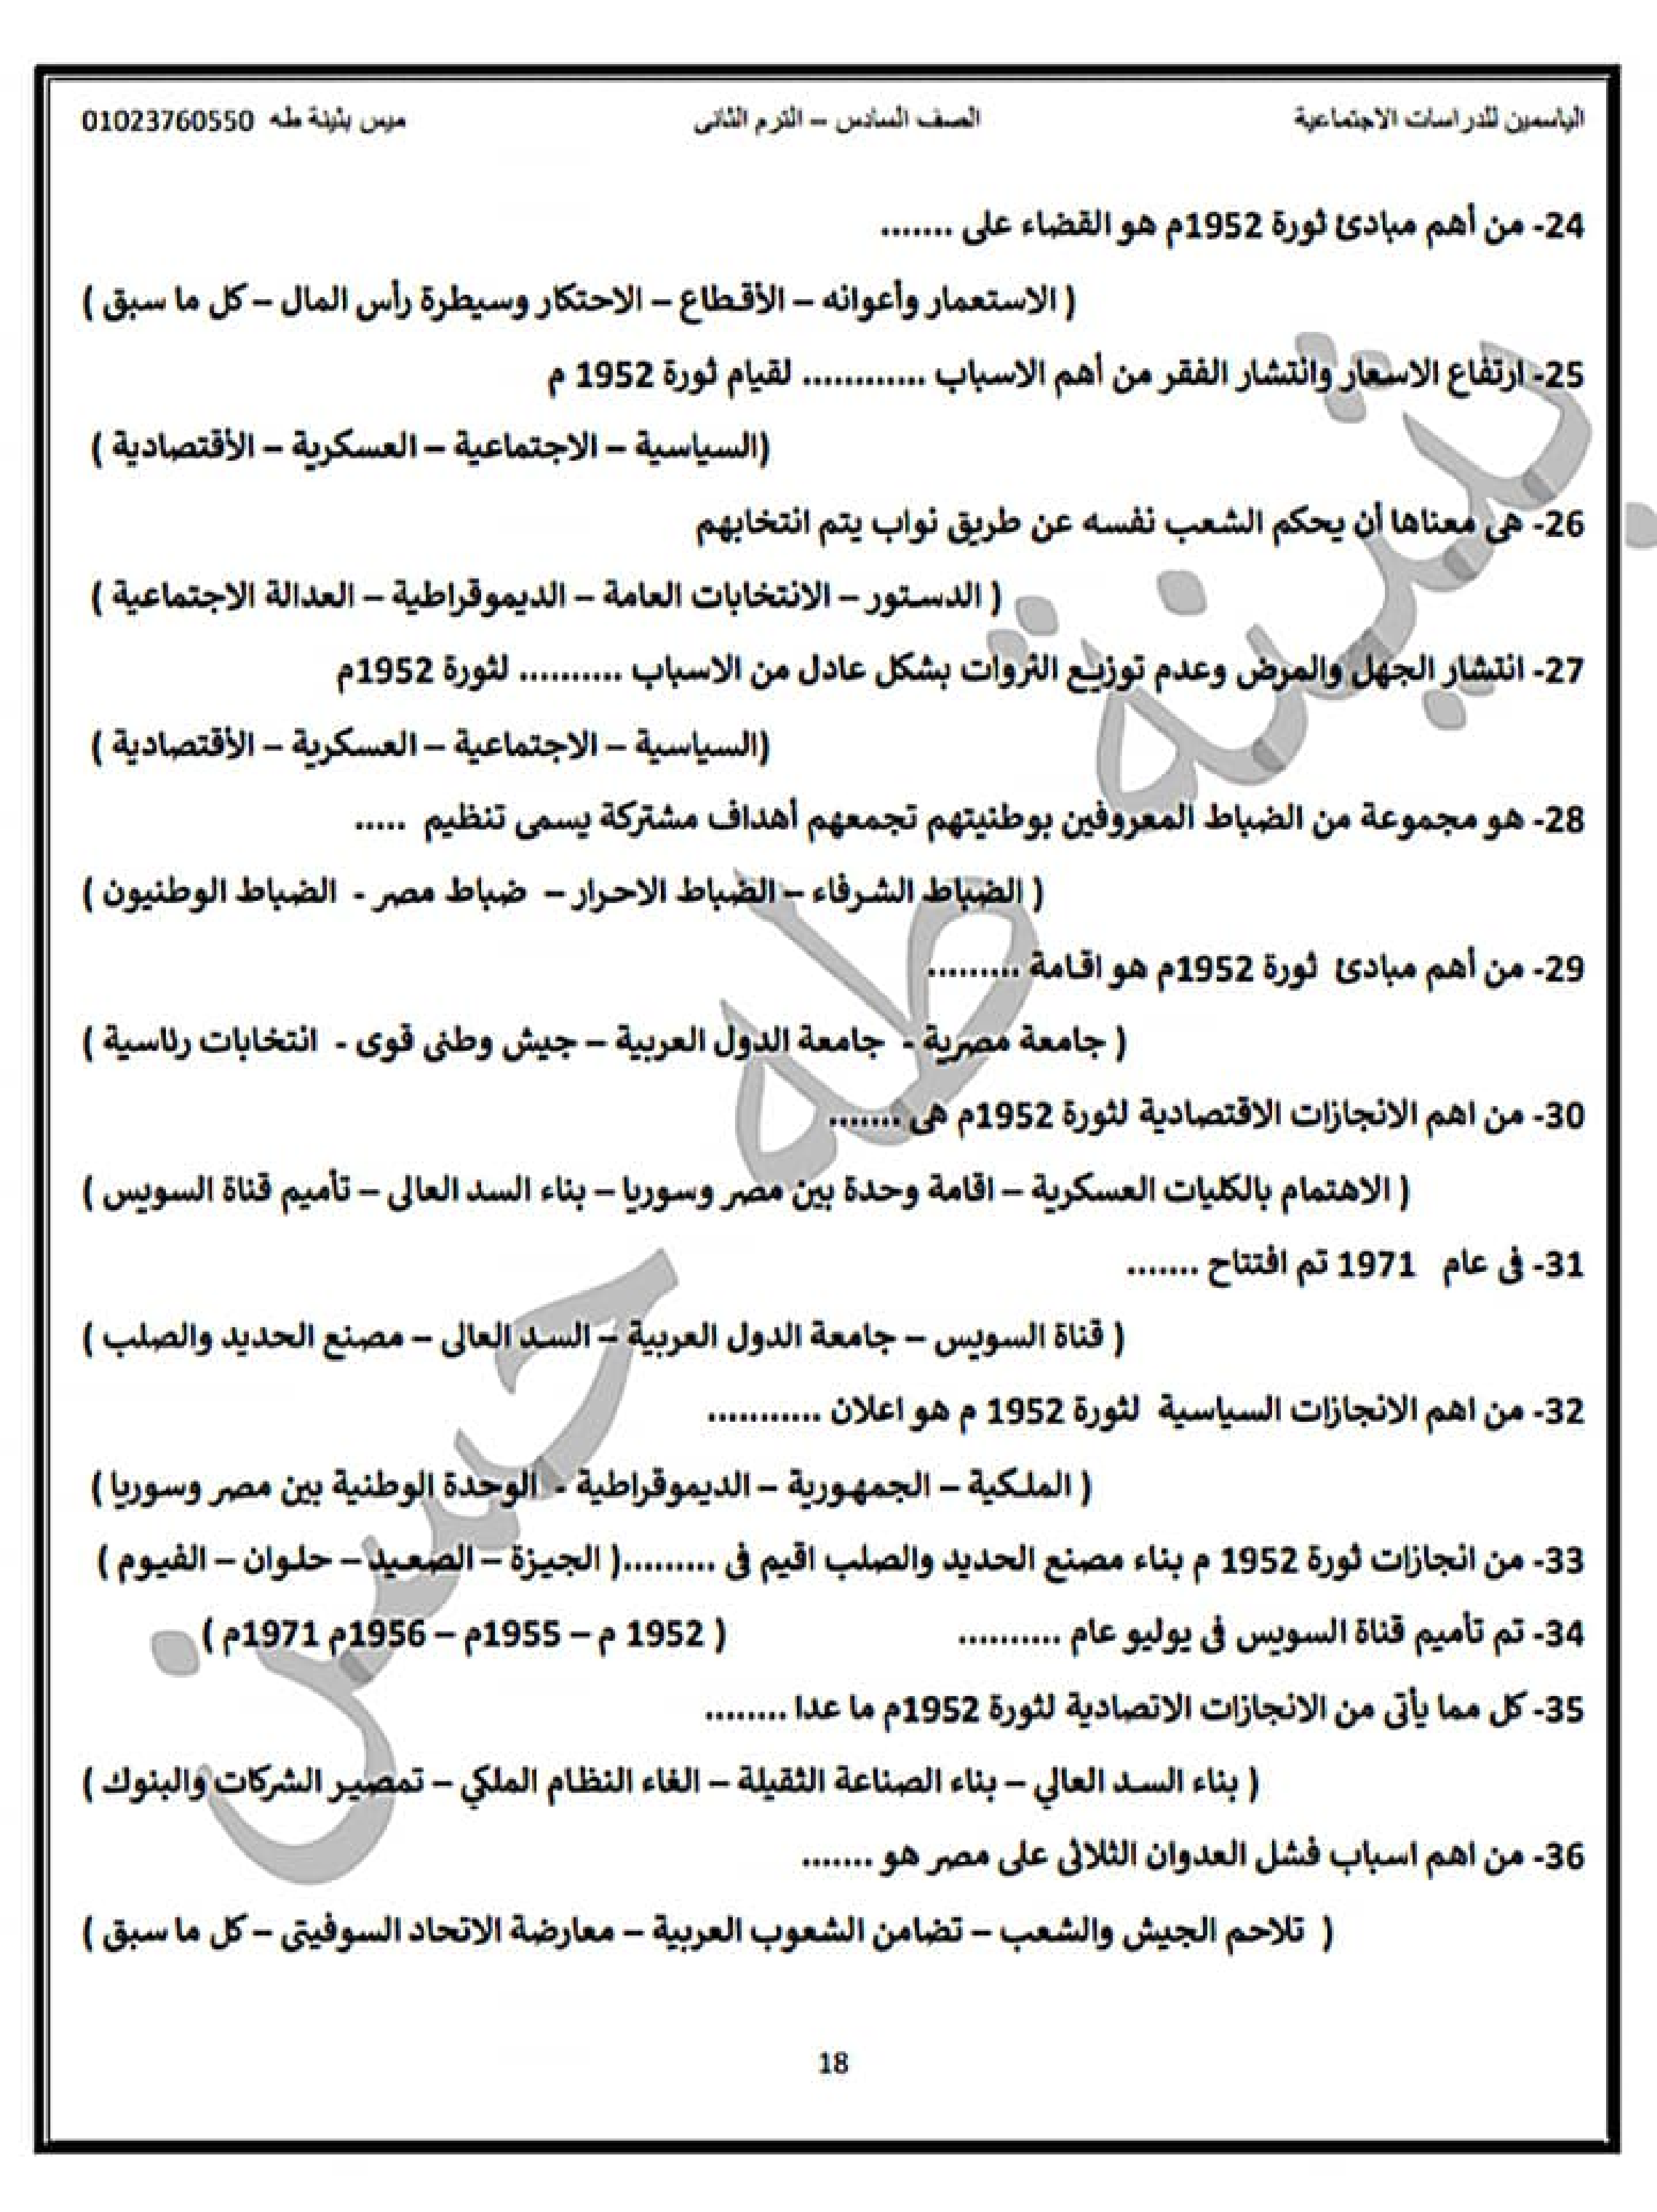 الياسمين للدراسات الاجتماعية الصف السادس – الترم الثانى ميس بثينة طه 01023760550
24- من أهم مبادئ ثورة 1952م هو القضاء على .......
( الاستعمار وأعوانه – الأقطاع – الاحتكار وسيطرة رأس المال – كل ما سبق )
25- ارتفاع الاسعار وانتشار الفقر من أهم الاسباب ............ لقيام ثورة 1952 م
(السياسية – الاجتماعية – العسكرية – الأقتصادية )
26- هى معناها أن يحكم الشعب نفسه عن طريق نواب يتم انتخابهم
( الدستور – الانتخابات العامة – الديموقراطية – العدالة الاجتماعية )
27- انتشار الجهل والمرض وعدم توزيع الثروات بشكل عادل من الاسباب .......... لثورة 1952م
(السياسية – الاجتماعية – العسكرية – الأقتصادية )
28- هو مجموعة من الضباط المعروفين بوطنيتهم تجمعهم أهداف مشتركة يسمى تنظيم .....
( الضباط الشرفاء – الضباط الاحرار – ضباط مصر - الضباط الوطنيون )
29- من أهم مبادئ ثورة 1952م هو اقامة .........
( جامعة مصرية - جامعة الدول العربية – جيش وطنى قوى - انتخابات رئاسية )
30- من اهم الانجازات الاقتصادية لثورة 1952م هى .......
( الاهتمام بالكليات العسكرية – اقامة وحدة بين مصر وسوريا – بناء السد العالى – تأميم قناة السويس )
31- فى عام 1971 تم افتتاح .......
( قناة السويس – جامعة الدول العربية – السد العالى – مصنع الحديد والصلب )
32- من اهم الانجازات السياسية لثورة 1952 م هو اعلان ...........
( الملكية – الجمهورية – الديموقراطية - الوحدة الوطنية بين مصر وسوريا )
33- من انجازات ثورة 1952 م بناء مصنع الحديد والصلب اقيم فى .........( الجيزة – الصعيد – حلوان – الفيوم )
34- تم تأميم قناة السويس فى يوليو عام .......... ( 1952 م – 1955م – 1956م 1971م )
35- كل مما يأتى من الانجازات الاتصادية لثورة 1952م ما عدا ........
( بناء السد العالي – بناء الصناعة الثقيلة – الغاء النظام الملكي – تمصير الشركات والبنوك )
36- من اهم اسباب فشل العدوان الثلاثى على مصر هو .......
( تلاحم الجيش والشعب – تضامن الشعوب العربية – معارضة الاتحاد السوفيتى – كل ما سبق )
18
بثينة طه حسن